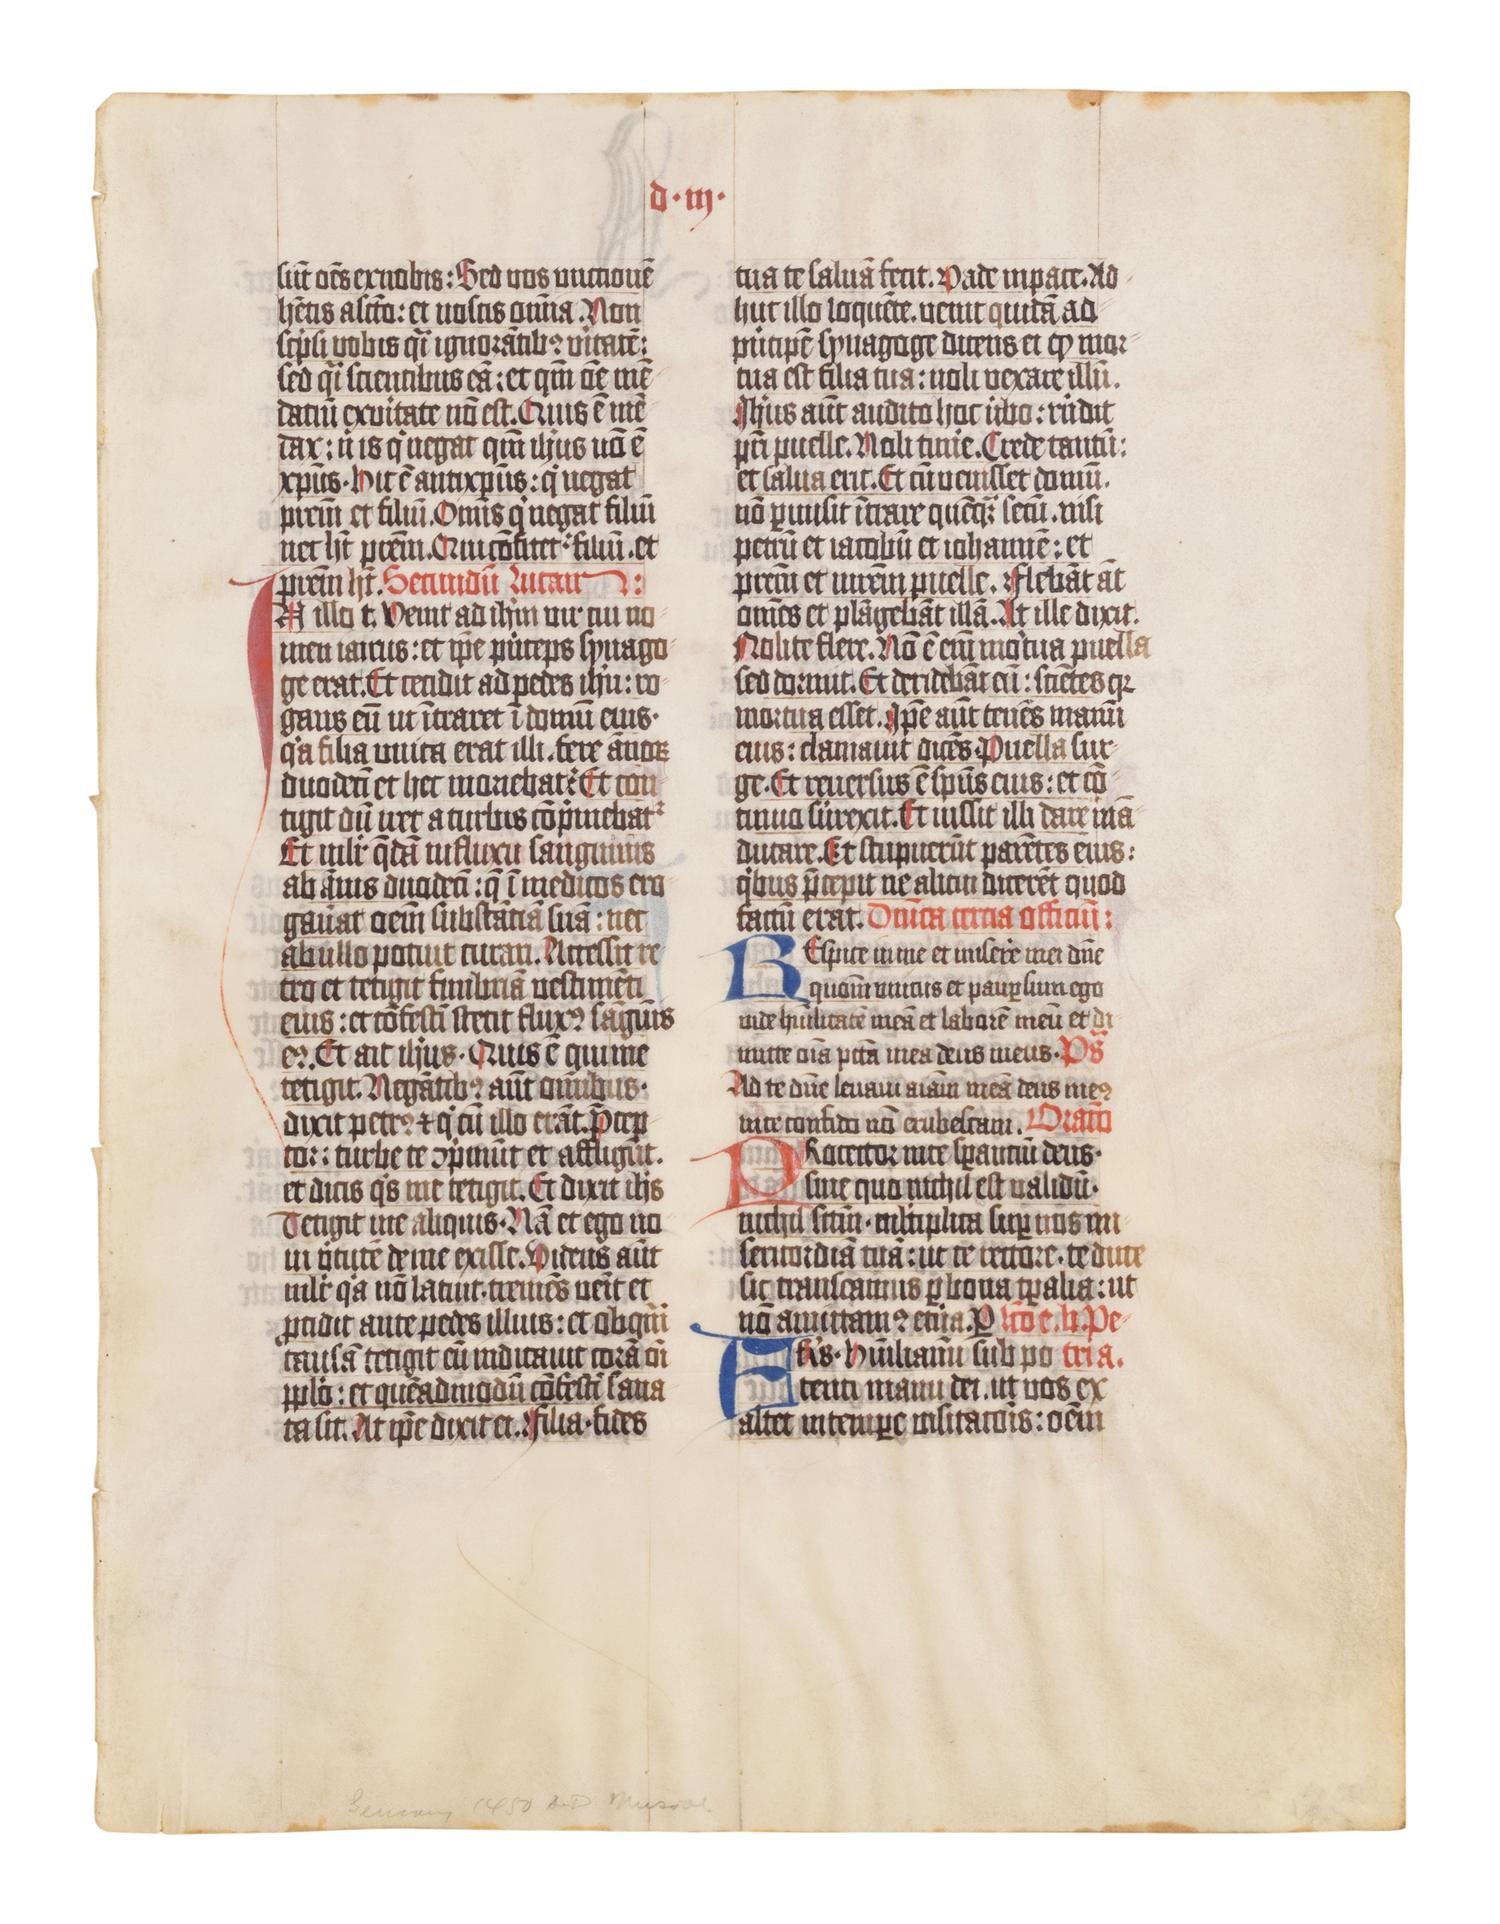 d · iii ·
sūt oēs ex nobis : Sed vos unctionē
hētis a sco̅ : et nostis omīa . Non
sc̓psi vobis q̄i ignorātibꝰ vitatē :
sed q̄i scientibus eā : et qm̄ oē mē
daciū ex vitate nō est . Quis ē mē
dax : n̓ is q̓ negat qm̄ ihūs nō ē
xp̄us . Hic ē antixp̄us : q̓ negat
prēm et filiū . Omīs q̓ negat filiū
nec ht̄ prēm . Qui cōfitet᷑ filiū . et
prēm ht̄ . Secundū Lucan :
In illo t . Venit ad ihm̄ vir cui no
men iairus : et ip̄e p̓nceps synago
ge erat . Et cecidit ad pedes ihū : ro
gans eū ut ītraret ī domū eius .
q̓a filia unica erat illi . fere ānoꝝ
duodecī et hec moriebat᷑ Et con
tigit dū iret a turbis cōp̓mebat᷑
Et mlr̄ q̄dā in fluxu sanguinis
ab ānis duodecī : q̄ ī medicos ero
gauat oēm substātiā suā : nec
ab ullo potuit curari . Accessit re
tro et tetigit fimbriā vestimēti
eius : et cōfestī stetit fluxꝰ sāguīs
eꝰ . Et ait ihūs . Quis ē qui me
tetigit . Negātibꝰ aūt omībus .
dixit petrꝰ ⁊ q̓ cū illo erāt . p̄cep
tor : turbe te ↄp̓mūt et affligūt .
et dicis q̓s me tetigit . Et dixit ihs̄
Tetigit me aliquis . Nā et ego no
ui v̓tutē de me exisse . Videns aūt
mlr̄ q̓a nō latuit . tremēs uēit et
ꝓcidit ante pedes illius : et ob quā
causā tetigit eū indicauit corā oī
pplo̅ : et quēadmodū cōfestī sana
ta sit . At ip̄e dixit ei . Filia . fides
tua te saluā fecit . Vade in pace . Ad
huc illo loquēte . venit quidā ad
p̓ncipē synagoge dicens ei qꝫ mor
tua est filia tua : noli vexare illū .
Ihūs aūt audito hoc v̓bo : rn̄dit
pr̄i puelle . Noli time . Crede tantū :
et salua erit . Et cū uenisset domū .
nō ꝑmisit ītrare quēqꝫ secū . nisi
petrū et iacobū et iohannē : et
prēm et mrēm puelle . Flebāt āt
omēs et plāgebāt illā . At ille dixit .
Nolite flere . Nō ē eīm mo̓tua puella
sed dormit . Et deridebāt eū : sciētes qꝛ
mortua esset . Ip̄e aūt tenēs manū
eius : clamauit dicēs Puella sur
ge . Et reuersus ē sp̄us eius : et cō
tinuo surrexit . Et iussit illi dare mā
ducare . Et stupuerūt parētes eius :
q̓bus p̄cepit ne alicui dicerēt quod
factū erat . Dn̄ica tercia officiū :
REspice in me et misere̓ mei dn̄e
quoniā unicus et paup̱ sum ego
vide hūilitatē meā et laborē meū et di
mitte oīa pctā mea deus meus . Ps̄
Ad te dn̄e leuaui aīam meā deus meꝰ
in te confido nō erubescam . Oracō
PRotector in te sꝑantiū deus .
sine quo nichil est ualidū .
nichil sctm̄ . ml̓tiplica suꝑ nos mi
sericordiā tuā : ut te rectore . te duce
sic transeamus ꝑ bona tꝑalia : ut
nō amittamꝰ etn̄a . P̱ lc̄o e . b . Pe
Frs̄ . Humiliamī sub po tri a .
tenti manu dei . ut vos ex
altet in tempe visitacōis : oēm
Germany 1450 A.D Missal